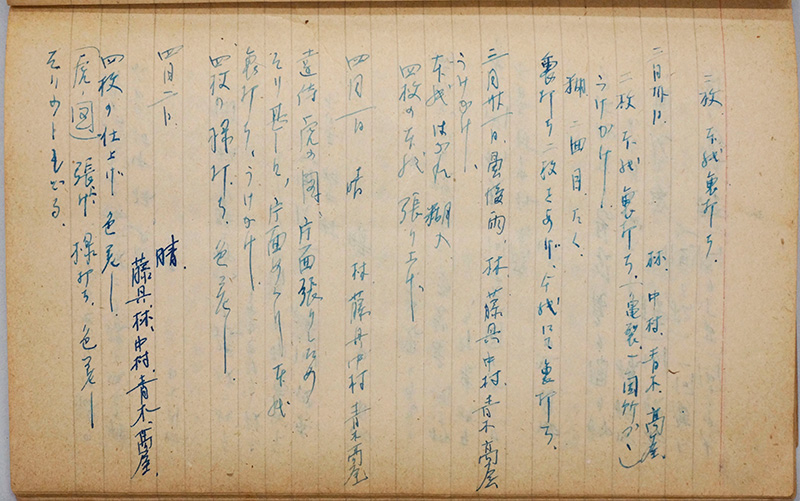 三枚 本紙裏打ち、
二月卅日、 林、中村、青木、高屋、
二枚 本紙裏打ち、(亀裂一箇所アリ)
うけかけ、
糊 二面目、たく、
裏打ち二枚をあげ、本紙にて裏打ち、
三月廿一日、曇後雨、林、藤具、中村、青木、高屋
うけかけ、
本紙はぶれ糊入
四枚の本紙張り上げ、
四月一日 晴 林 藤具 中村 青木 高屋
遠侍 虎の図、片面張りしため
そり甚しと、片面のより本紙
裏打ち、うけかけ、
四枚の裸打ち、色差し、
四月二日、 晴、
藤具、林、中村、青木、高屋、
四枚の仕上げ 色差し、
(虎ノ図) 張り、裸打ち、色差し
そり少々もどる、